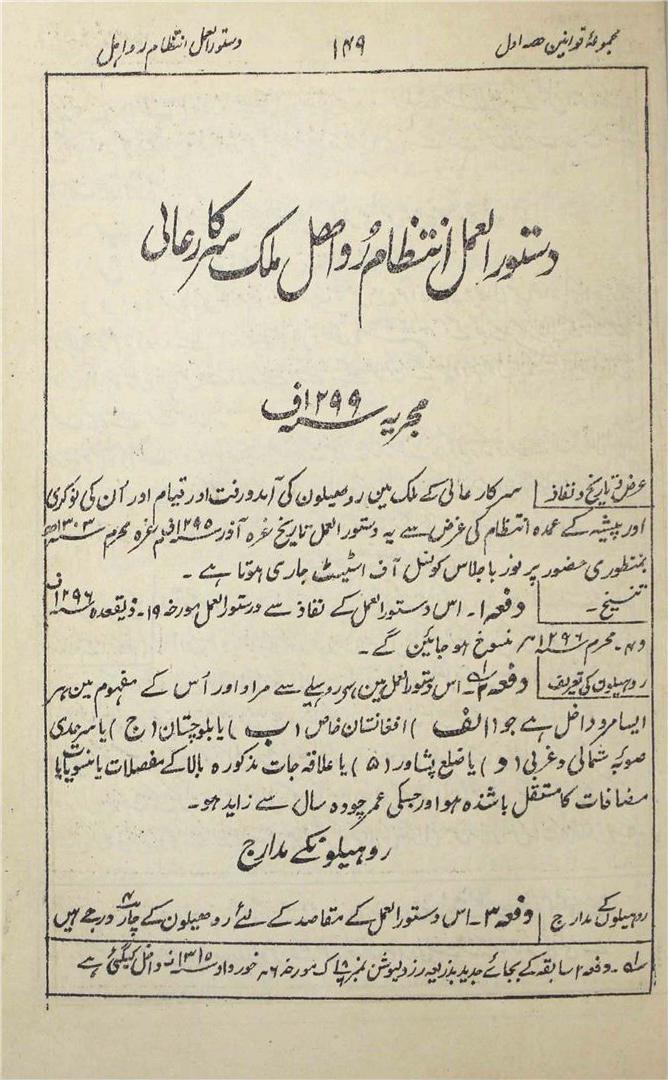 مجموعۂ قوانین حصہ اول
۱۴۹
دستور العمل انتظام رواہل
دستور العمل انتظام رُواہل ملک سرکار عالی
مجریہ ۱۲۹۹ سنہ ف
غرض و تاریخ و نفاذ
سرکار عالی کے ملک مین روہیلون کی آمد ورفت اور قیام اور اُن کی نوکری
اور پیشہ کے عمدہ انتظام کی غرض سے یہ دستور العمل تاریخ غرہ آذر سنہ ۱۲۹۵ف م غرہ محرم سنہ ۱۳۰۳ھ
بمنظوری حضور پر نور باجلاس کونسل آف اسٹیٹ جاری ہوتا ہے ۔
تنسیخ ۔
دفعہ ۱۔ اس دستور العمل کے نفاذ سے دستور العمل مورخہ ۱۹۔ ذیقعدہ سنہ ۱۲۹۶
و ۷۔ محرم سنہ ۱۲۹۶ منسوخ ہو جائیں گے ۔
روہیلون کی تعریف
دفعہ ۲۔ اس دستور العمل مین روہیلے سے مراد اور اُس کے مفہوم مین ہر
ایسا مرد داخل ہے جو (الف) افغانستان خاص (ب) یا بلوچستان (ج) یا سرحدی
صوبہ شمالی و غربی (د) یا ضلع پشاور (۵) یا علاقہ جات مذکورہ بالا کے مفصلات یا
مضافات کا مستقل باشندہ ہو اور جسکی عمر چودہ سال سے زاید ہو۔
روہیلونکے مدارج
روہیلوں کے مدارج
دفعہ ۳۔ اس دستور العمل کے مقاصد کے لئے روہیلون کے چار درجے ہیں
۱؎۔ دفعہ ۲ سابقہ کے بجائے جدید بذریعہ رزولیوشن نمبر مورخہ ۶ خورداد سنہ ۱۳۱۵ف داخل کیگئی ہے